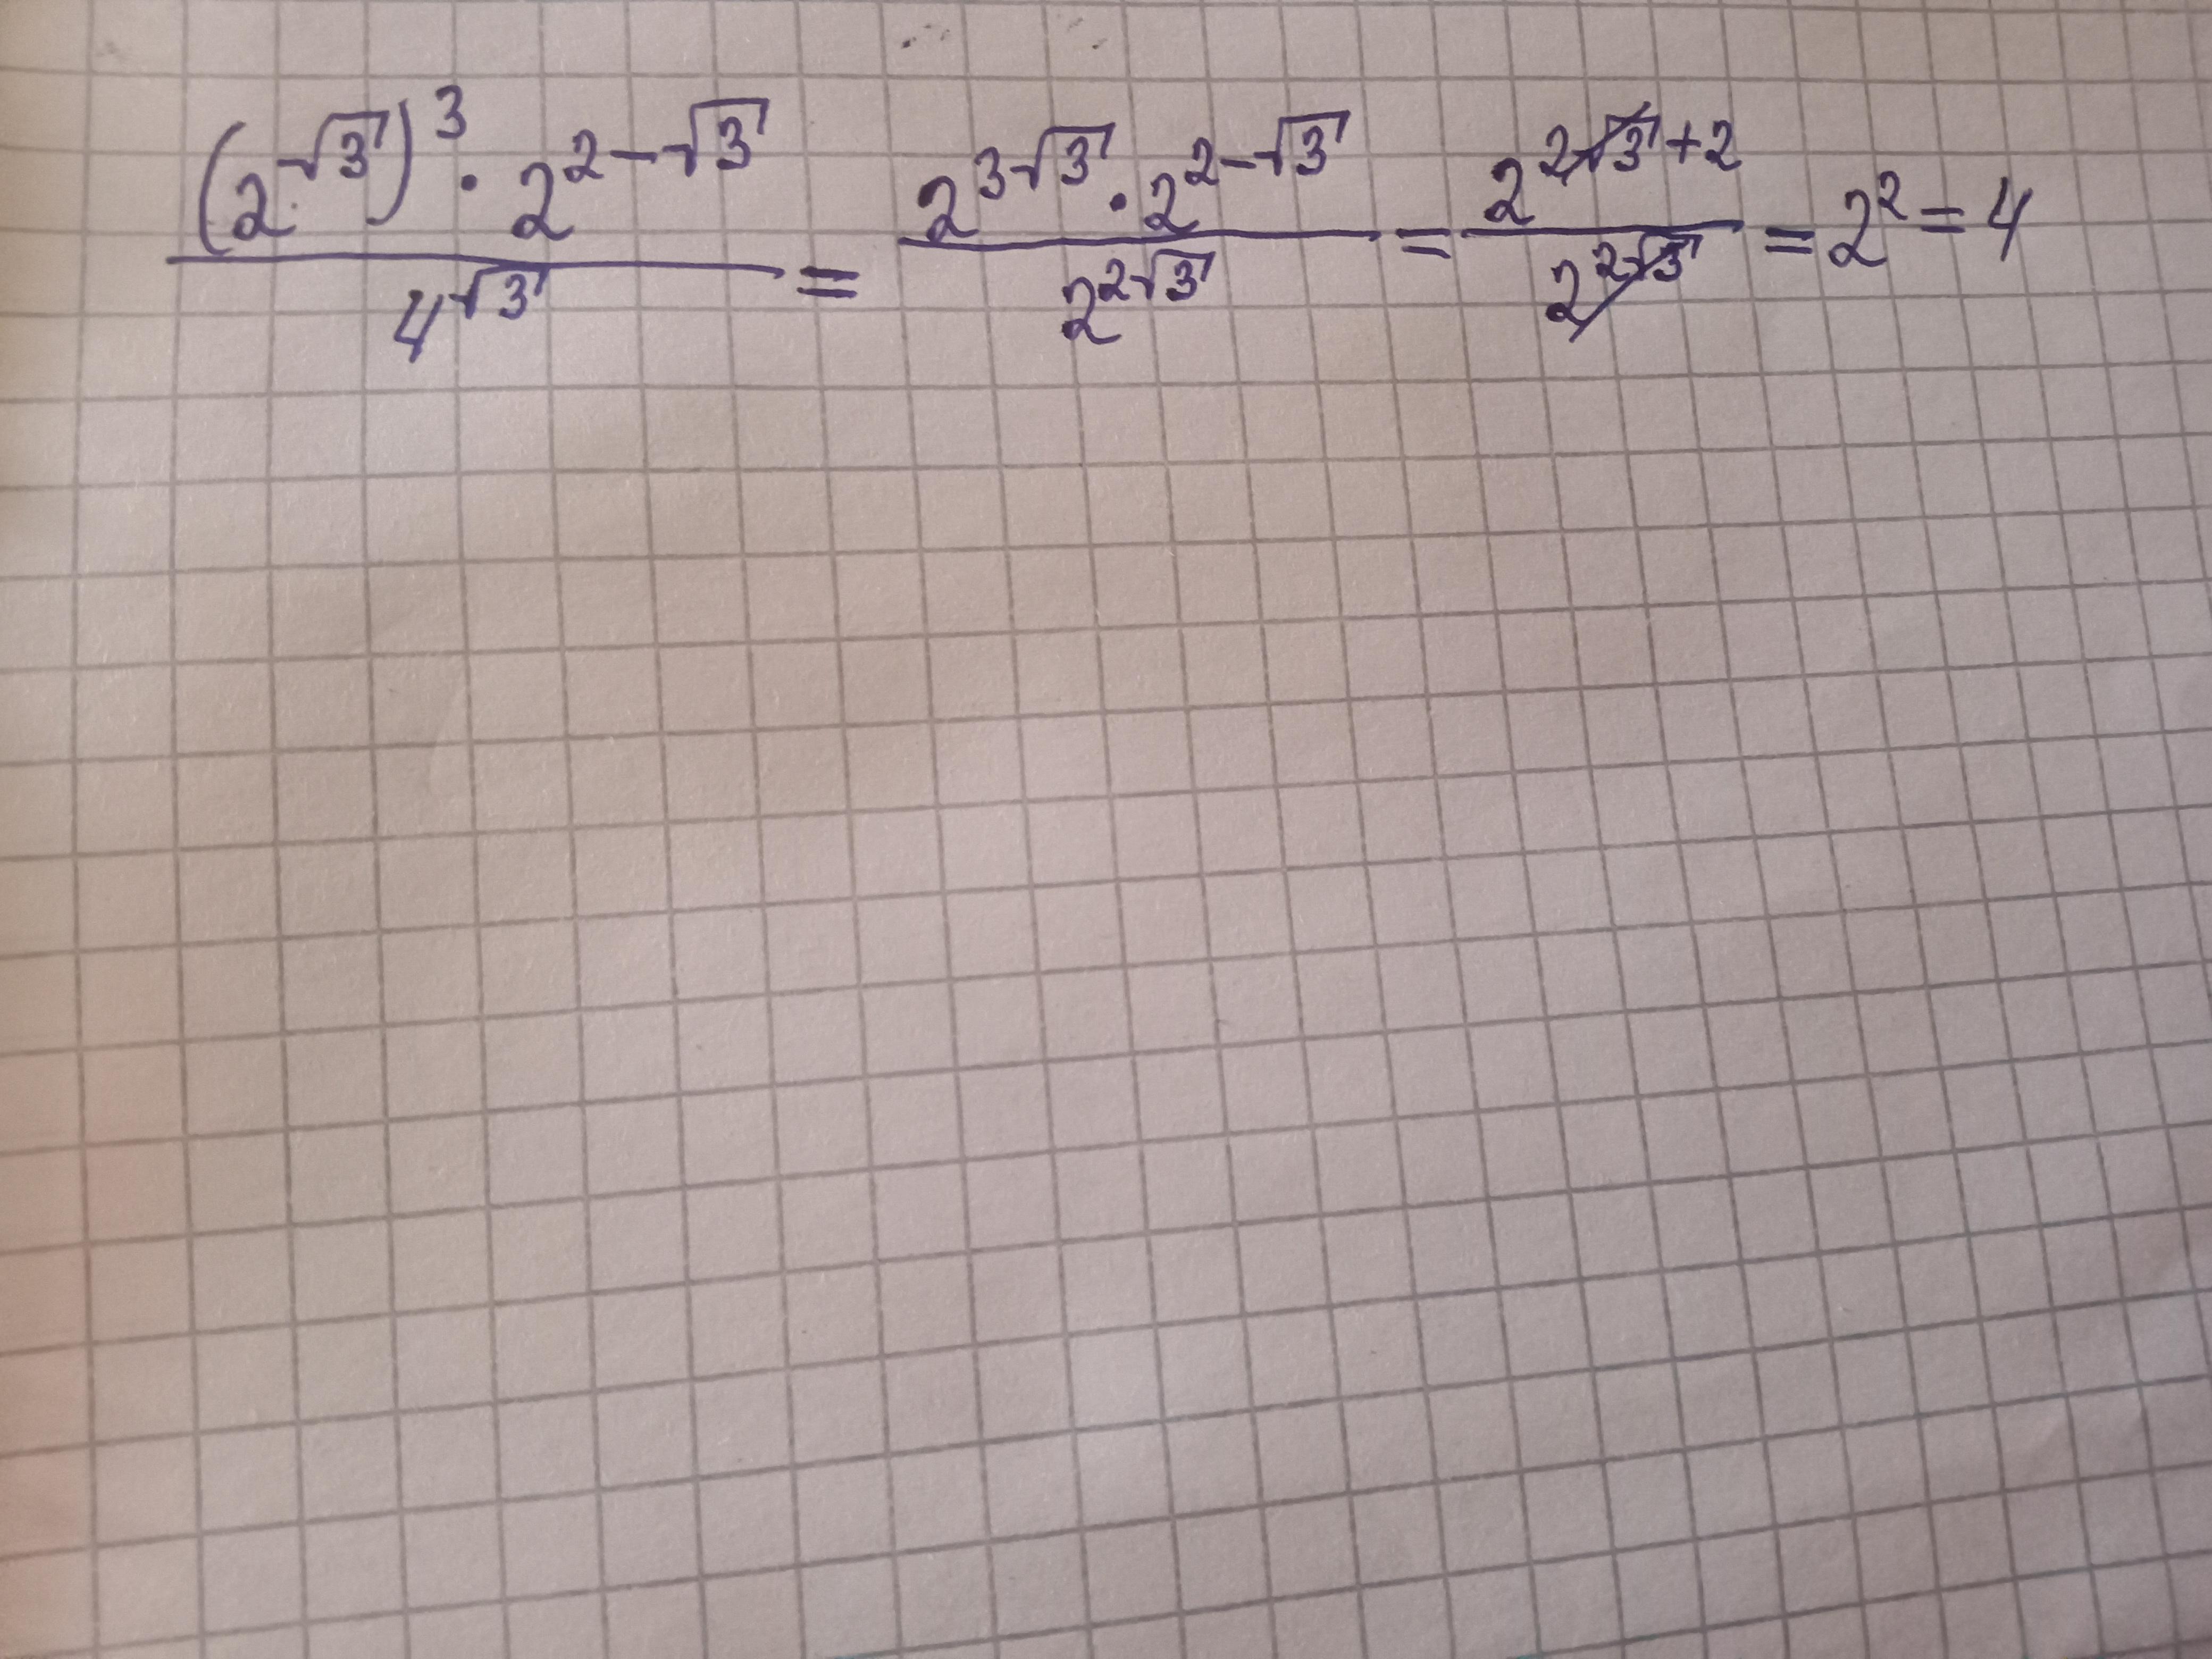 (2^√3)^3 · 2^(2-√3) / 4^√3 = 2^(3√3) · 2^(2-√3) / 2^(2√3) = 2^(2√3+2) / 2^(2√3) = 2^2 = 4